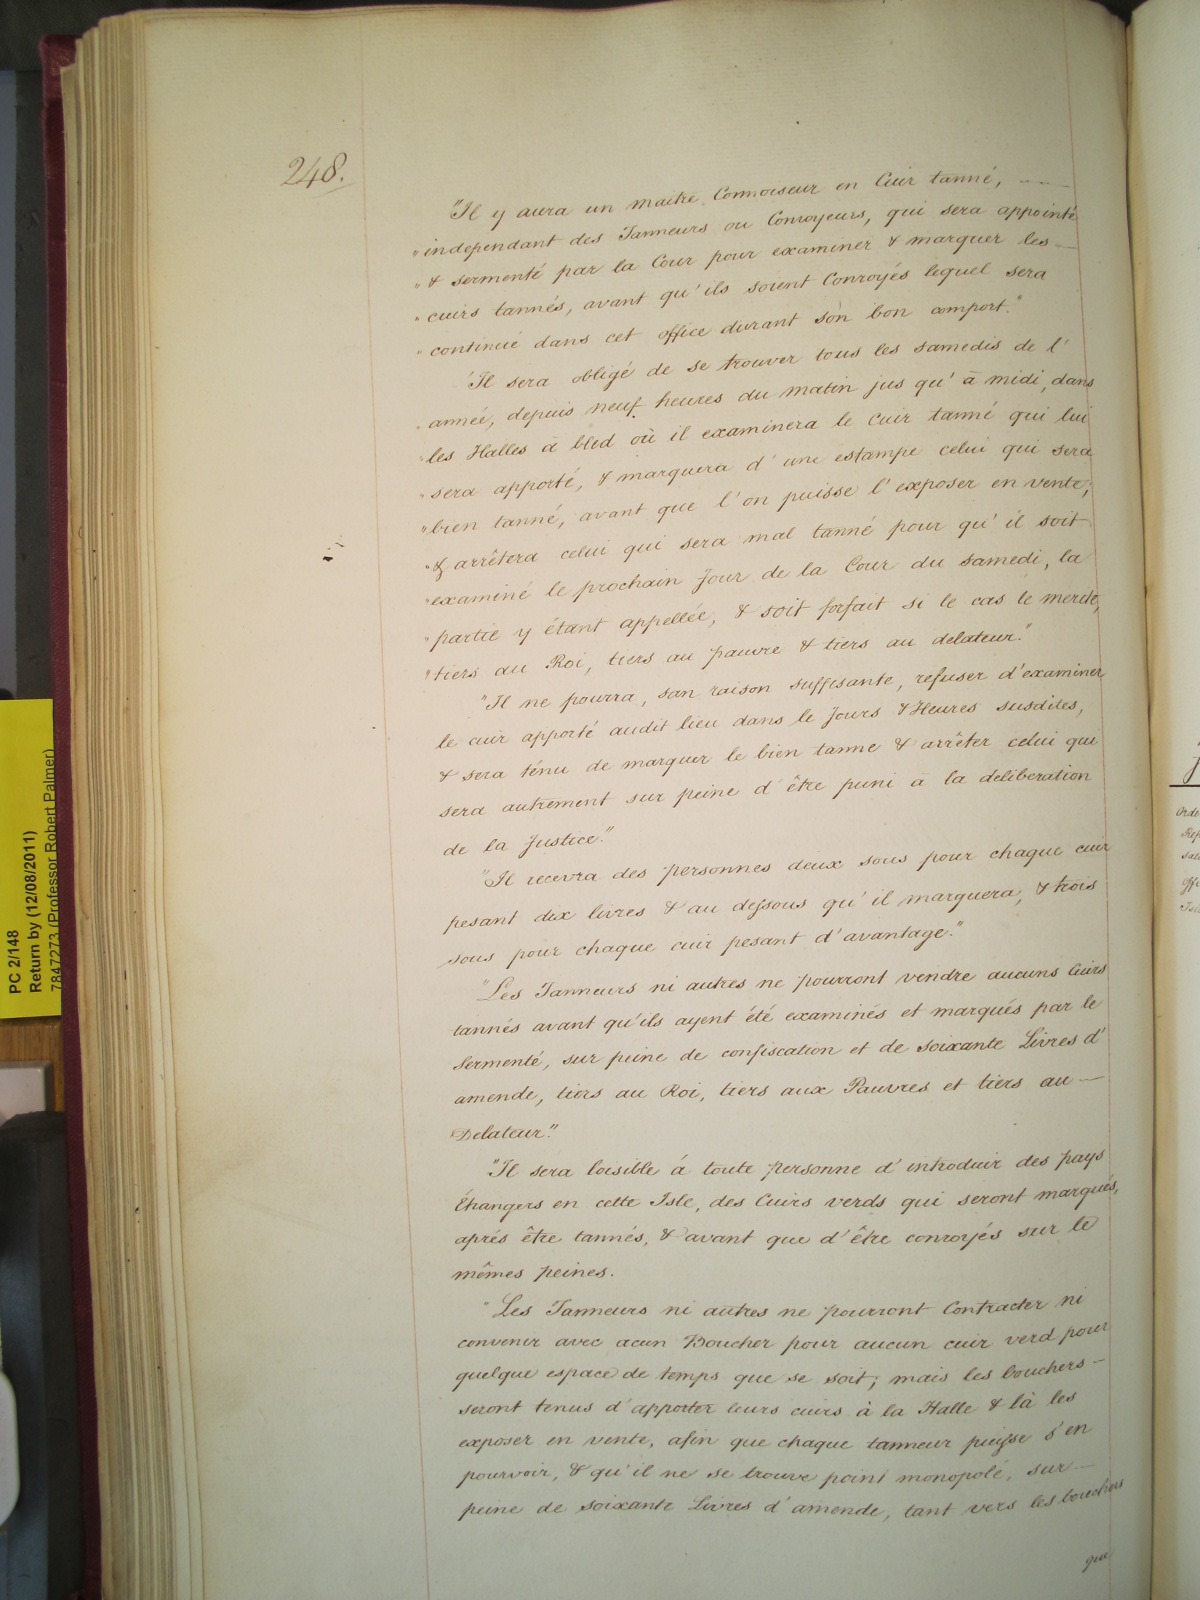 248.
"Il y aura un maitre Connoiseur en Cuir tanné, ——
"independant des Tanneurs ou Conroyeurs, qui sera appointé
"& sermenté par la Cour pour examiner & marquer les —
"cuirs tannés, avant qu'ils soient Conroyés lequel sera
"continué dans cet office durant son bon comport."
"Il sera obligé de se trouver tous les samedis de l'
"année, depuis neuf heures du matin jus qu' à midi, dans
"les Halles à bled où il examinera le cuir tanné qui lui
"sera apporté, & marquera d' une estampe celui qui sera
"bien tanné, avant que l'on puisse l'exposer en vente;
"& arrêtera celui qui sera mal tanné pour qu' il soit
"examiné le prochain Jour de la Cour du samedi, la
"partie y étant appellée, & soit forfait si le cas le merite,
"tiers au Roi, tiers au pauvre & tiers au delateur."
"Il ne pourra, san raison suffisante, refuser d'examiner
le cuir apporté audit lieu dans le Jours & Heures susdites,
& sera ténu de marquer le bien tanne & arrêter celui qui
sera autrement sur peine d'être puni à la deliberation
de la Justice."
"Il recevra des personnes deux sous pour chaque cuir
pesant dix livres & au dessous qu' il marquera, & trois
sous pour chaque cuir pesant d'avantage."
"Les Tanneurs ni autres ne pourront vendre aucuns Cuirs
tannés avant qu'ils ayent été examinés et marqués par le
Sermenté, sur peine de confiscation et de soixante Livres d'
amende, tiers au Roi, tiers aux Pauvres et tiers au —
Delateur."
"Il sera loisible à toute personne d' introduir des pays
Étrangers en cette Isle, des Cuirs verds qui seront marqués,
aprés être tannés, & avant que d'être conroyés sur le
mêmes peines.
"Les Tanneurs ni autres ne pourront Contracter ni
convenir avec acun Boucher pour aucun cuir verd pour
quelque espace de temps que se soit; mais les bouchers —
seront tenus d'apporter leurs cuirs à la Halle & là les
exposer en vente, afin que chaque tanneur puisse s'en
pourvoir, & qu'il ne se trouve point monopolé, sur —
peine de soixante Livres d'amende, tant vers les bouchers
que
PC 2/148
Return by (12/08/2011)
7847273 (Professor Robert Palmer)